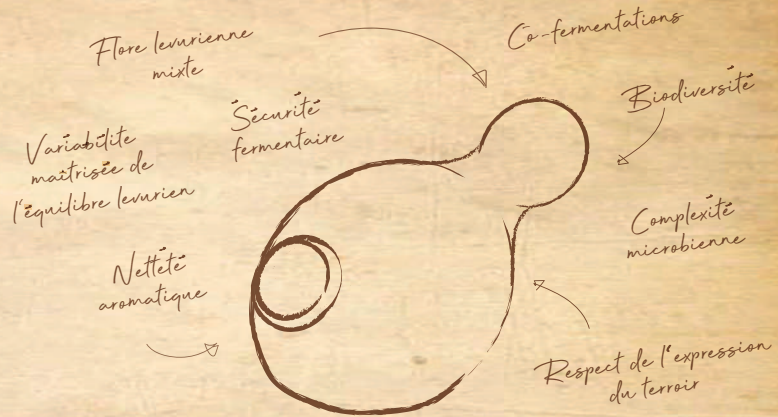 Flore levurienne
mixte
Co-fermentations
Biodiversité
Sécurité
fermentaire
Variabilite
maîtrisée de
l'équilibre levurien
Complexité
microbienne
Netteté
aromatique
Respect de l'expression
du terroir